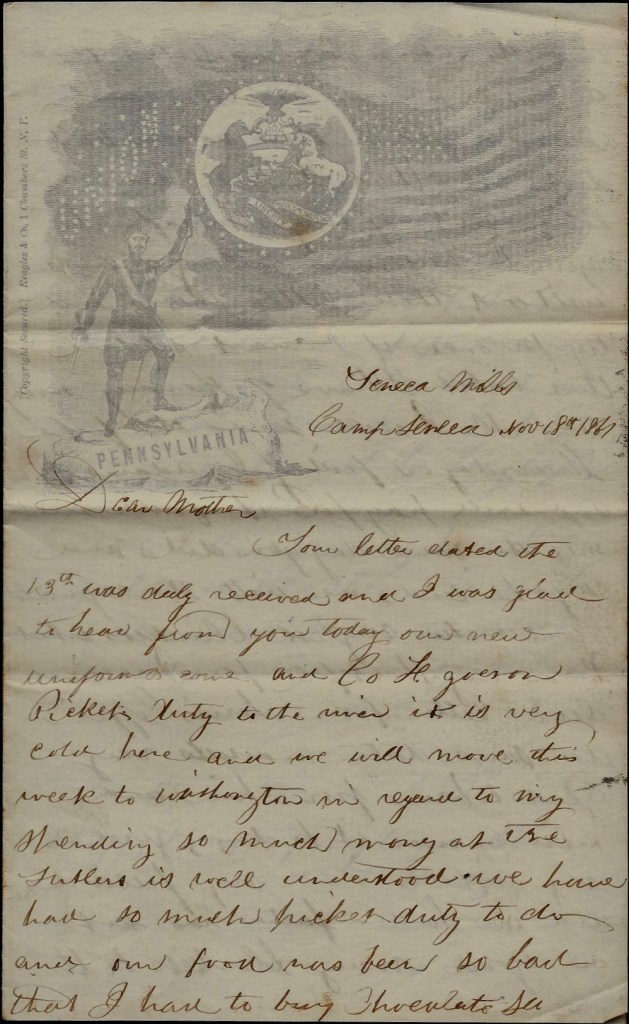 (Copyright Secured.) Reagles & Co, 1 Chambers St. N. Y.
PENNSYLVANIA
Seneca Mills
Camp Seneca Nov 18th 1861
Dear Mother
Your letter dated the
13th was duly received and I was glad
to hear from you today our new
uniforms come and Co H goes on
Picket Duty to the river it is very
cold here and we will move this
week to Washington in regard to my
spending so much mony at the
Sutlers is well understood we have
had so much picket duty to do
and our food has been so bad
that I had to buy Chocolate